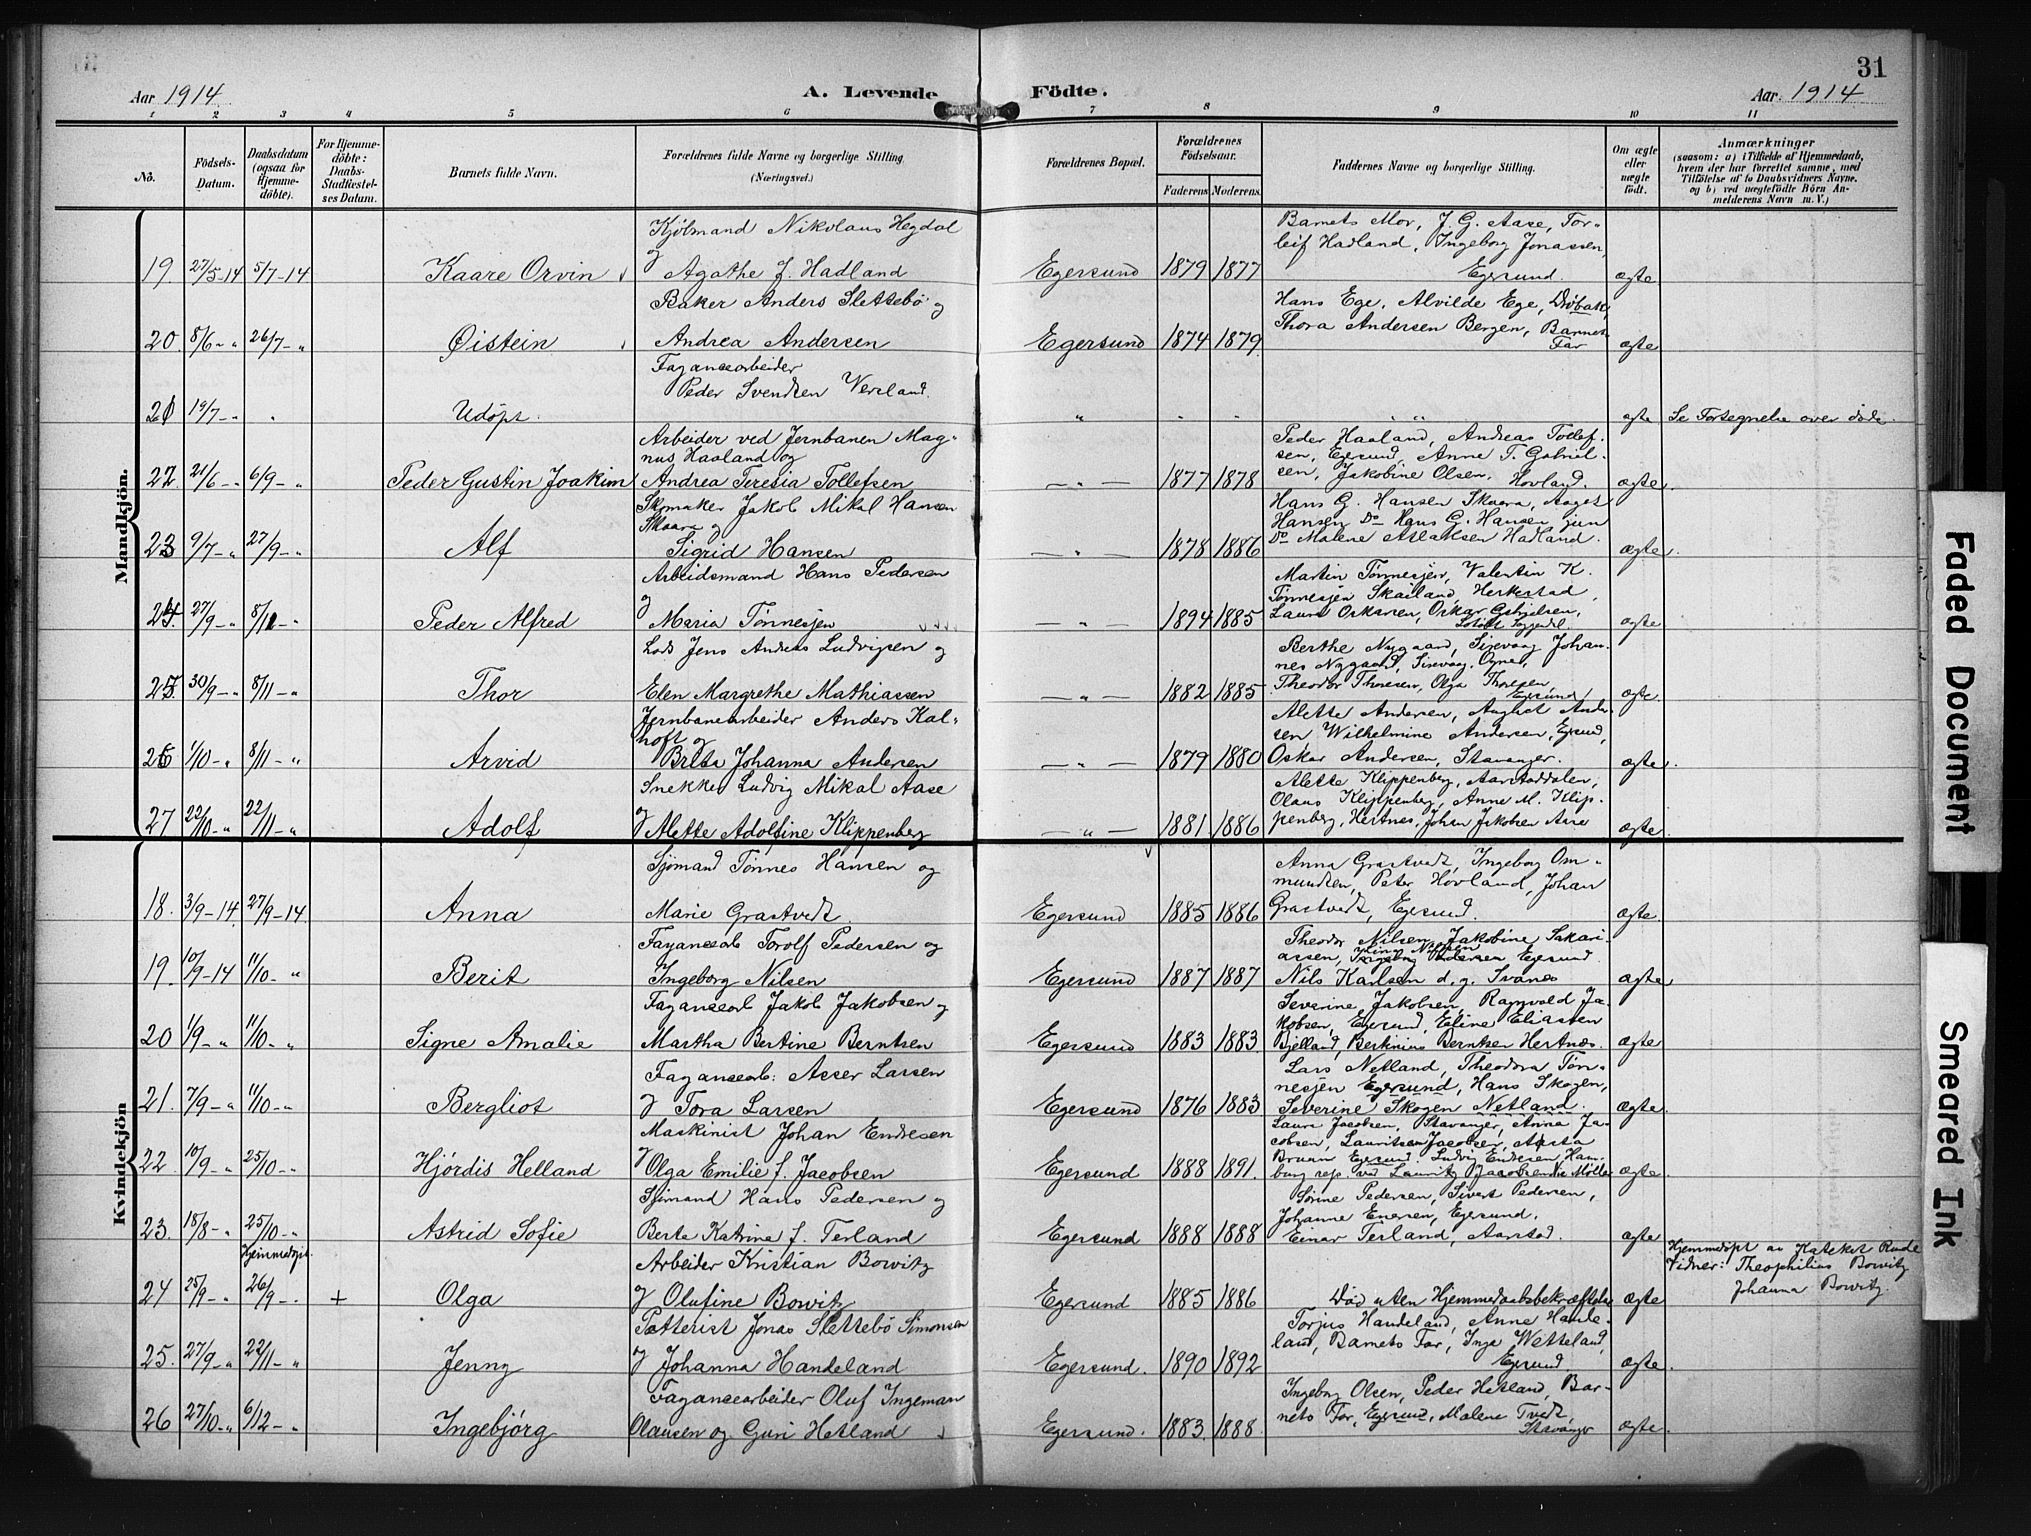 31
Aar 1914
A. Levende Födte.
Aar 1914
1 2 3 4 5 6 7 8 9 10 11
No.
Födsels-Datum.
Daabsdatum (ogsaa for Hjemmedöbte).
For Hjemmedöbte: Daabs-Stadfæstelses Datum.
Barnets fulde Navn.
Forældrenes fulde Navne og borgerlige Stilling. (Næringsvei.)
Forældrenes Bopæl.
Forældrenes Födselsaar.
Faderens Moderens.
Faddernes Navne og borgerlige Stilling.
Om ægte eller uægte födt.
Anmærkninger
(saasom: a) i Tilfælde af Hjemmedaab, hvem der har forrettet samme, med Tilföielse af to Daabsvidners Navne. og b) ved uægtefödte Börn Anmelderens Navn m. V.)
Mandkjön.
Kjølmand Nikolaus Hegdal
19. 27/5-14 5/7-14 Kaare Orvin og Agathe f. Hadland Egersund 1879 1877
Barnets Mor, J. G. Aase, Tor-
leif Hadland, Ingeborg Jonassen,
Egersund. ægte
Baker Anders Slettebö og
20. 8/6-" 26/7-" Øistein Andrea Andersen Egersund 1874 1879.
Hans Ege, Alvilde Ege, Drøbak,
Thora Andersen Bergen, Barnets
Far ægte
Fayancearbeider
Peder Svendsen Versland.
21 19/7-" " Udöpt. " " " " " ægte Se Fortegnelse over døde.
Arbeider ved Jernbanen Mag-
nus Haaland og
22. 21/6-" 6/9-" Peder Gustin Joakim Andrea Teresia Tollefsen — " — 1877 1878
Peder Haaland, Andreas Tollef-
sen, Egersund, Anne T. Gabriel-
sen, Jakobine Olsen, Hovland. ægte.
Skomaker Jakob Mikal Hansen
Skaara og
23 9/7-" 27/9-" Alf Sigrid Hansen — " — 1878 1886
Hans G. Hansen Skaara, Aaget
Hansen Do Hans G. Hansen jun
Do Malene Aslaksen Hadland. ægte.
Arbeidsmand Hans Pedersen
24. 27/9-" 8/11-" Peder Alfred og Maria Tönnesjen — " — 1894 1885
Martin Tönnesjen, Valentin K.
Tönnesjen Skailand, Herkestad,
Laura Oskarsen, Oskar
ægte
Lods Jens Andreas Ludvigsen og
25. 30/9-" 8/11-" Thor Elen Margrethe Mathiassen — " — 1882 1885.
Berthe Nygaard, Sirevaag Johan-
nes Nygaard, Sirevaag, Ogna,
Theodor Thoresen, Olga Thoresen,
Egersund ægte
Jernbanearbeider Anders Kal-
hoft og
26 1/10-" 8/11-" Arvid Brita Johanna Andersen — " — 1879 1880
Alette Andersen, August Ander-
sen Wilhelmine Andersen, Egersund,
Oskar Andersen, Stavanger. ægte.
Snekker Ludvig Mikal Aase
27 22/10-" 22/11-" Adolf og Alette Adolfine Klippenberg — " — 1881 1886
Alette Klippenberg, Aarstaddalen,
Olaus Klippenberg, Anne M. Klip-
penberg, Hertnes, Johan Jakobsen Aase ægte.
Kvindekjön
Sjømand Tönnes Hansen og
18. 3/9-14. 27/9-14. Anna Marie Grastvedt. Egersund 1885 1886
Anna Grastvedt, Ingeborg Om-
mundsen, Peter Hovland, Johan
Grastvedt, Egersund. ægte.
Fayancearb Torolf Pedersen og
19. 10/9-14 11/10-" Berit Ingeborg Nilsen Egersund 1887 1887
Theodor Nilsen, Jakobine Sakari-
assen, Pedersen Egersund.
Nils Karlsen d. g. Svanes ægte
Fayancearb Jakob Jakobsen og
20 1/9-" 11/10-" Signe Amalie Martha Bertine Berntsen Egersund 1883 1883.
Severine Jakobsen, Ragnvald Ja-
kobsen, Egersund, Eline Eliassen
Bjelland, Bertinius Berntsen Hertnæs. ægte
Fayancearb: Asser Larsen
21. 7/9-" 11/10-" Bergliot og Tora Larsen Egersund 1876 1883
Lars Netland, Theodora Tön-
nesjen Egersund, Hans Skogen,
Severine Skogen Netland. ægte.
Maskinist Johan Endresen
22. 10/9-" 25/10-" Hjördis Helland og Olga Emilie f. Jacobsen Egersund 1888 1891.
Laura Jacobsen, Stavanger, Anna Ja-
cobsen, Lauritsen Jacobsen, Aasta
Bruun Egersund. Ludvig Endresen Ham-
burg rep. ved Lauritz Jacobsen ægte
Sjømand Hans Pedersen og
23. 18/8-" 25/10-" Astrid Sofie Berta Katrine f. Terland Egersund 1888 1888
Sørine Pedersen, Sivert Pedersen,
Johanne Enersen, Egersund.
Einar Terland, Aarstad. ægte
Hjemmedøpt.
Arbeider Kristian Bowitz
24 25/9-" 26/9-" + Olga og Olufine Bowitz Egersund 1885 1886
Død uten Hjemmedaabsbekræftelse ægte
Hjemmedøpt av Kateket Runde
Vidner: Theophilius Bowitz
Johanna Bowitz.
Potterist Jonas Slettebö Simonsen
25. 27/9-" 22/11-" Jenny og Johanna Handeland Egersund. 1890 1892
Torjus Handeland, Anne Hande-
land, Barnets Far, Inga Wetteland,
Egersund. ægte
Fayancearbeider Oluf Ingeman
26 27/10-" 6/12-" Ingebjørg Olausen og Guri Hetland Egersund. 1883. 1888.
Ingeborg Olsen, Peder Hetland, Bar-
nets Far, Egersund, Malene Tvedt,
Stavanger ægte.
Faded Document
Smeared Ink